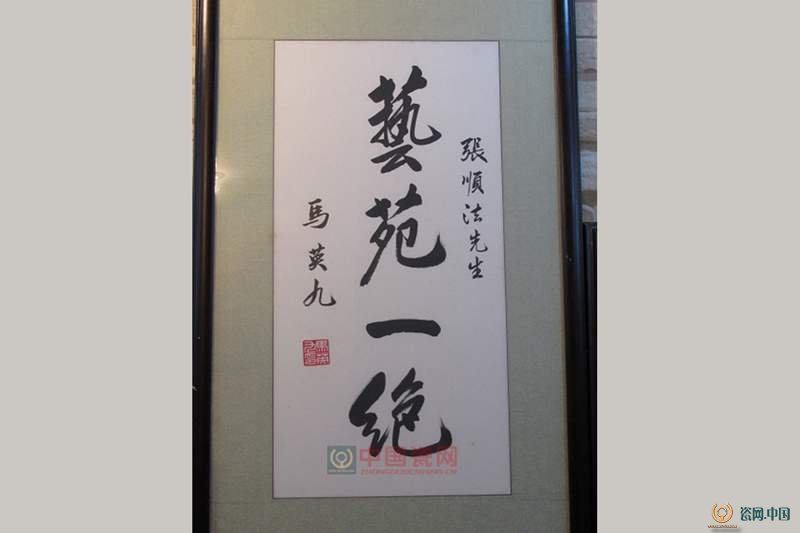 張順法先生
藝苑一絶
馬英九
中国瓷网
ZHONGGUOCIWANG.CN
瓷网.中国